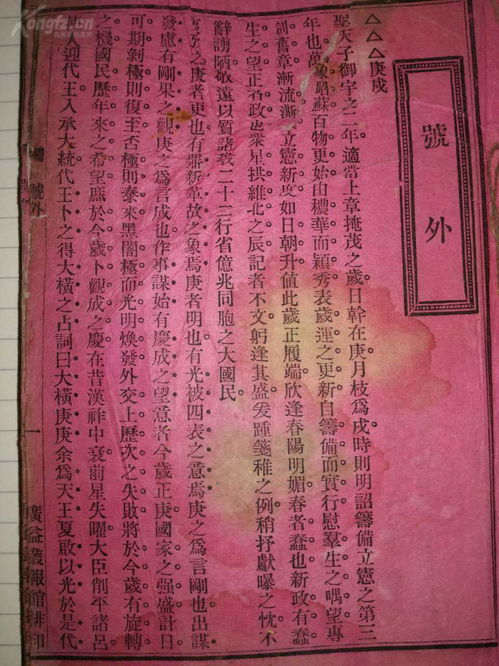 號外
△△△庚戌
聖天子御宇之二年適當上章掩茂之歲日幹在庚月枝爲戌時則明詔籌備立憲之第三
年也萬象昭蘇百物更始由穠華而穎秀表歲運之更新自籌備而實行慰羣生之喁望專
制舊章漸流漸立憲新度如日朝升值此歲正履端欣逢春陽明媚春者蠢也新政有蠢
生之望正者政也衆星拱維北之辰記者不文躬逢其盛爰踵箋稚之例稍抒獻曝之忱不
辭謭陋敬遠以質諸我二十二行省億兆同胞之大國民
之庚者更也有鼎新革故之象焉庚者明也有光被四表之意焉庚之爲言剛也出謀
發慮有剛果之觀庚之爲言成也作事謀始有慶成之望意者今歲正庚國家之强盛計日
可期剝極則復至否極則泰來黑闇極而光明煥發外交上歷次之失敗將於今歲有旋轉
之機國民歷年來之希望庶於今歲卜觀成之慶在昔漢祚中衰前星失曜大臣削平諸呂
迎代王入承大統代王卜之得大橫之占詞曰大橫庚庚余爲天王夏啟以光於是代
號外
一
廣益叢報館排印